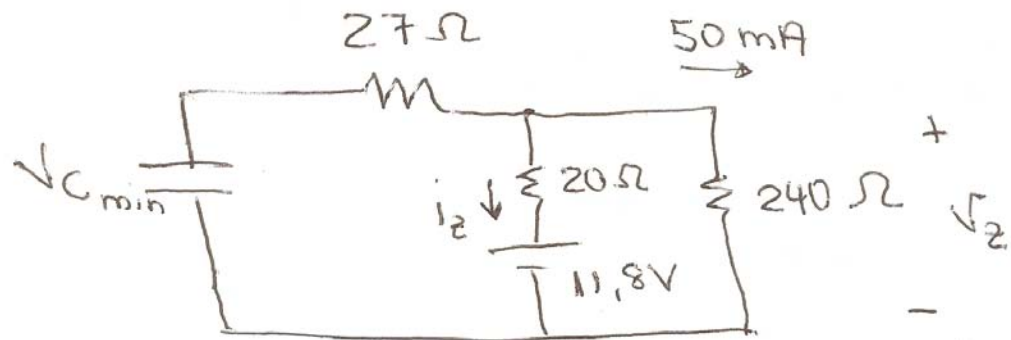 27 Ω
50 mA
Vc min
iz
20 Ω
240 Ω
+
Vz
11,8V
-